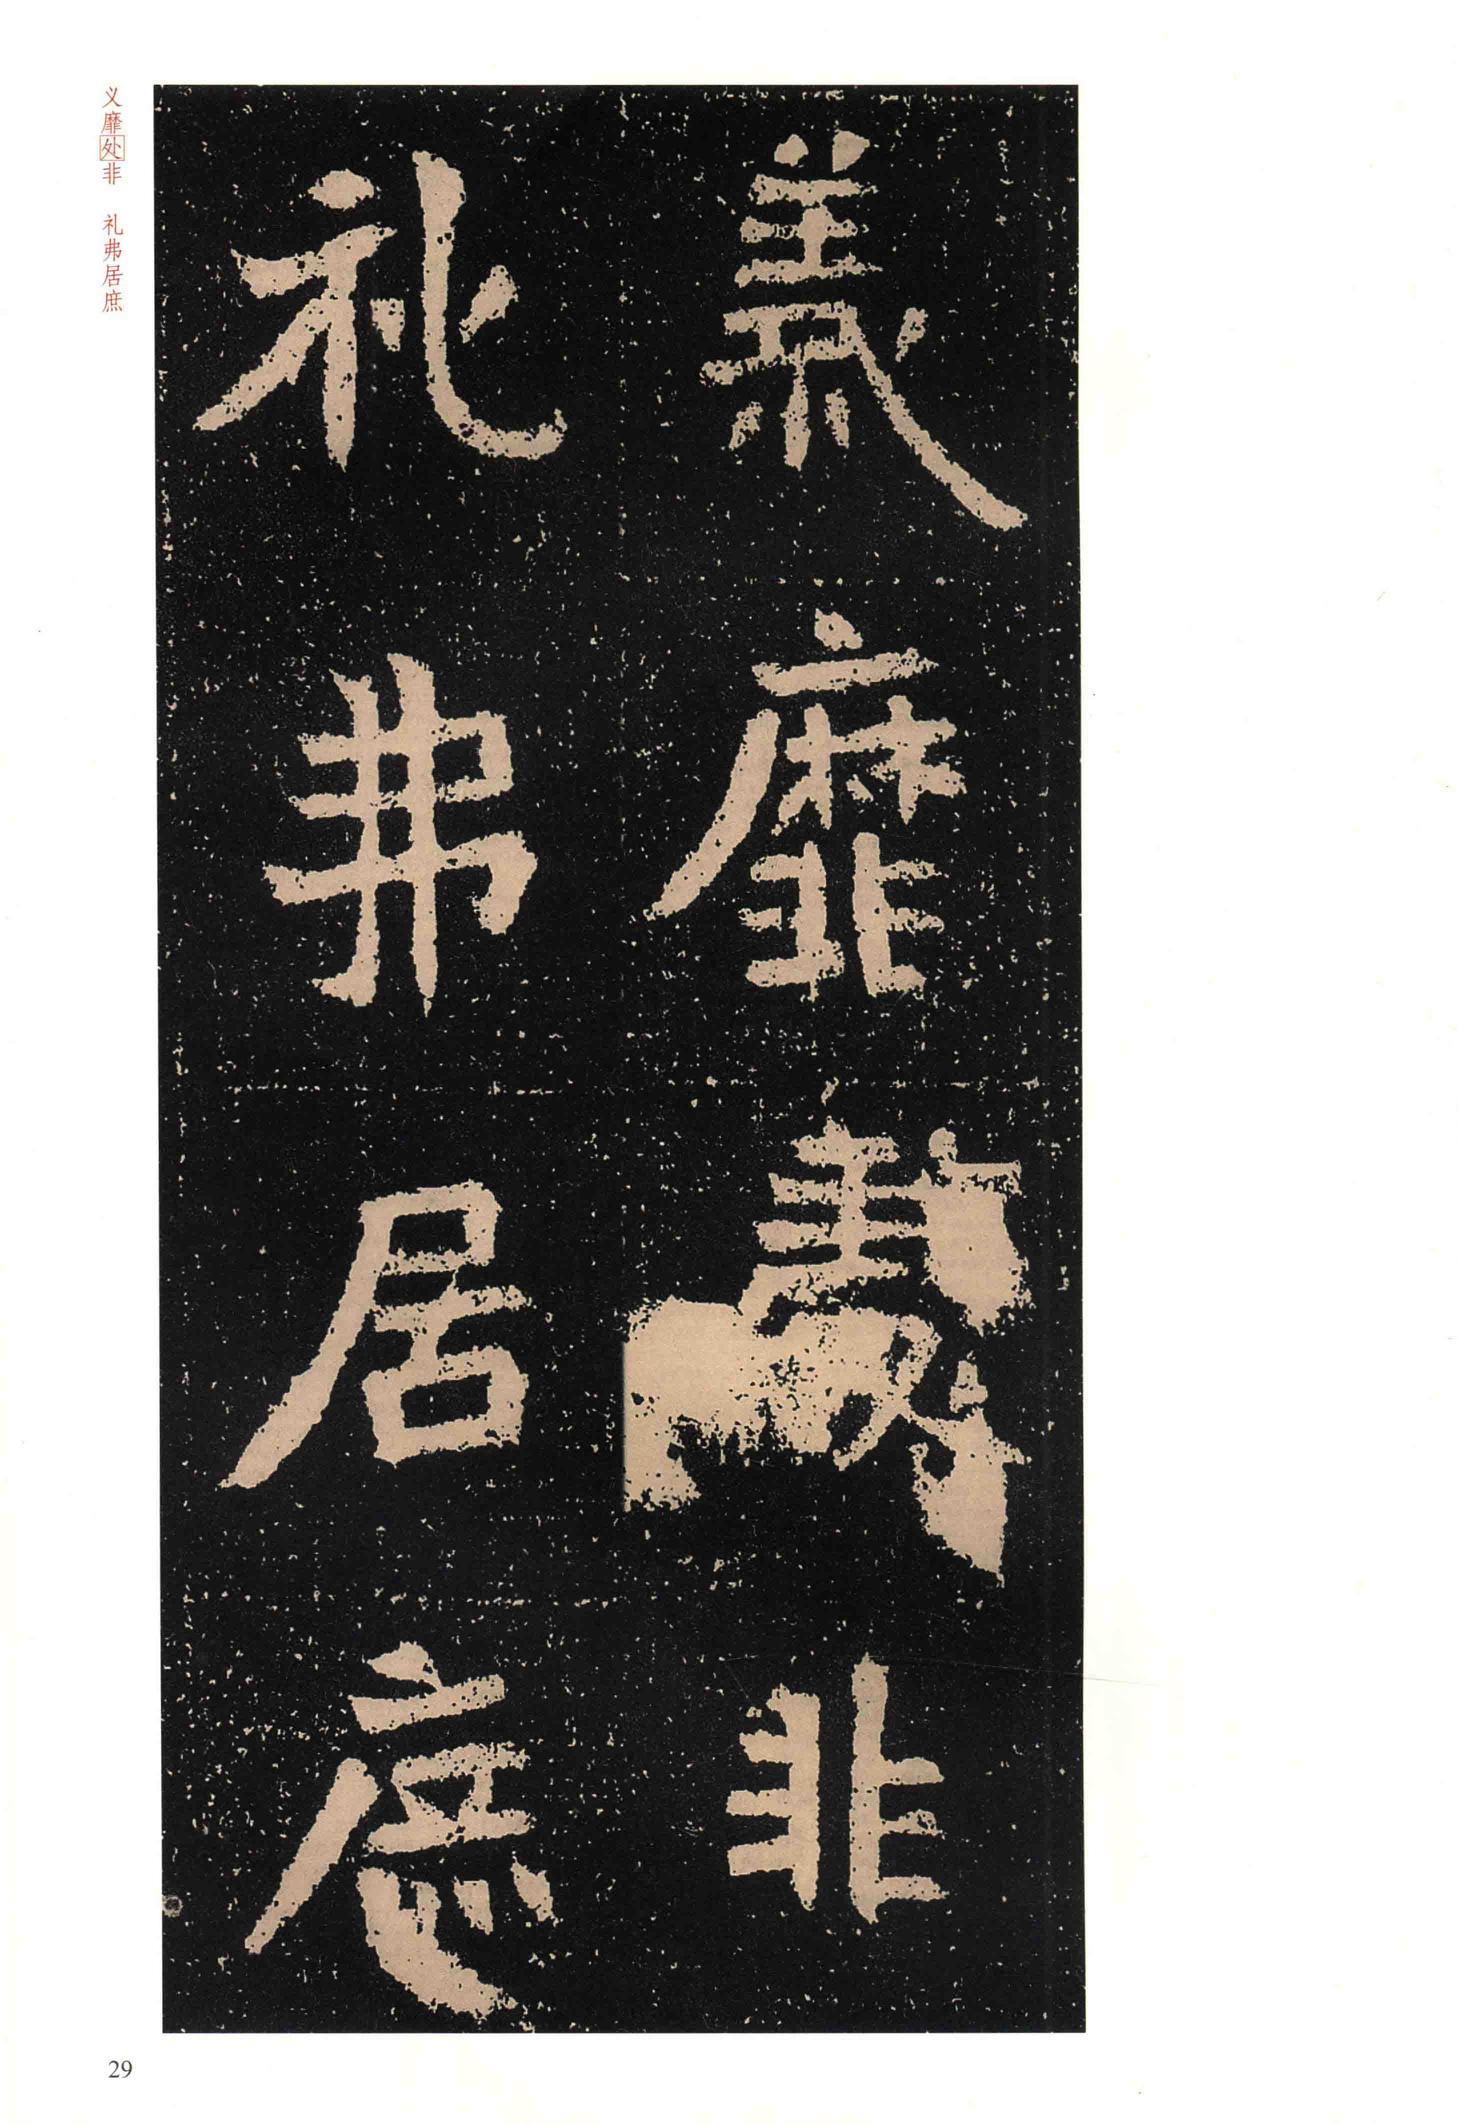 義靡處非
礼弗居庶
义靡处非 礼弗居庶
29